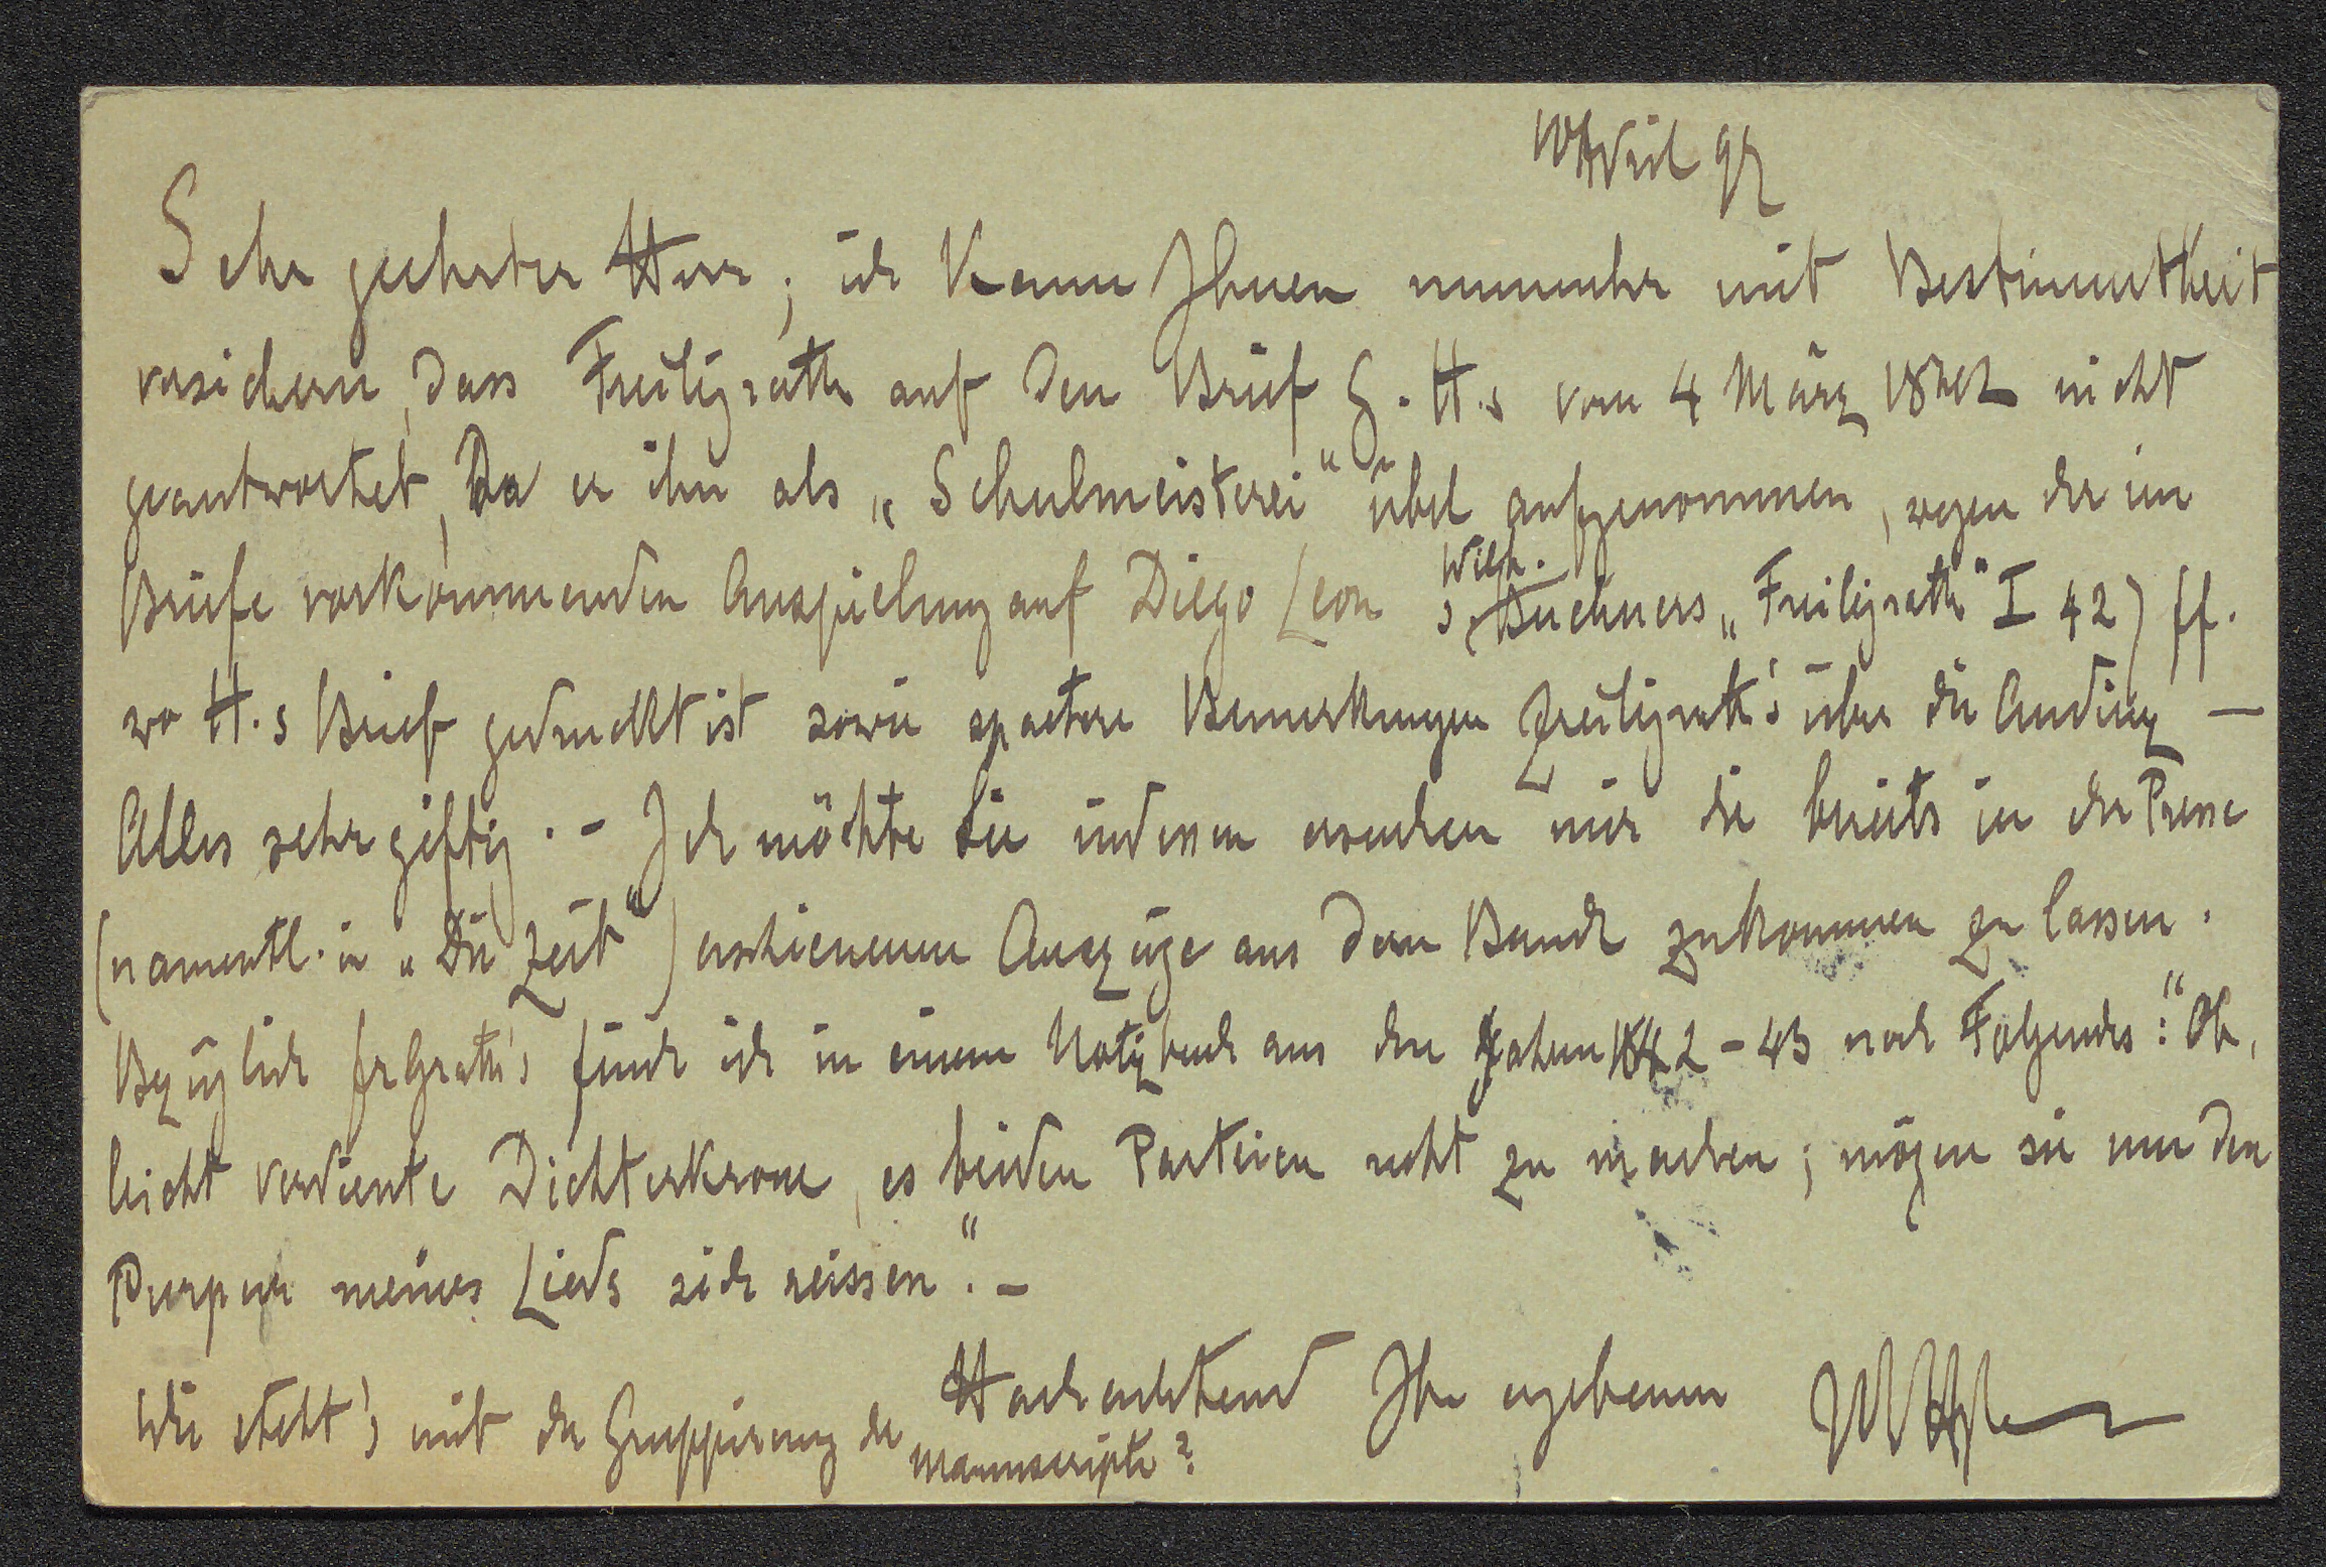 10 April 97
Sehr geehrter Herr; ich kann Ihnen nunmehr mit Bestimmtheit
versichern, dass Freiligrath auf den Brief G. H.s vom 4 März 1842 nicht
geantwortet, da er ihn als „Schulmeisterei“ übel aufgenommen, wegen der im
Briefe vorkommenden Anspielung auf Diego Leon s. Wilh. Buchners „Freiligrath“ I 42) ff.
wo H.s Brief gedruckt ist sowie spaetere Bemerkungen Freiligrath's über die Audienz –
Alles sehr giftig. – Ich möchte Sie indessen ersuchen mir die bereits in der Presse
(namentl. in „Die Zeit“) erschienenen Auszüge aus dem Bande zukommen zu lassen.
Bezüglich frlgrath's finde ich in einem Notizbuch aus den Jahren 1842–43 noch Folgendes: “Oh,
leicht verdiente Dichterkrone, es beiden Parteien recht zu machen; mögen sie um den
Purpur meines Lieds sich reissen“. –
Hochachtend Ihr ergebener
Wie steht's mit der Gruppirung der
Manuscripte?